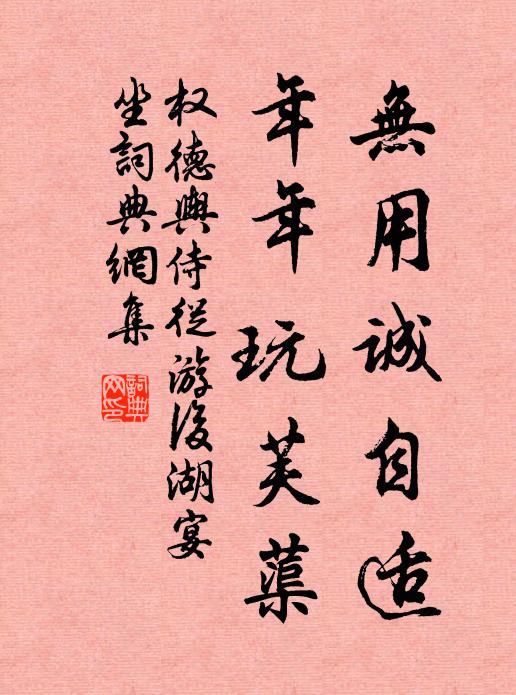 無用誠自適
年年玩芙蕖
权德輿侍從游後湖宴
坐詞典網集
詞典網印